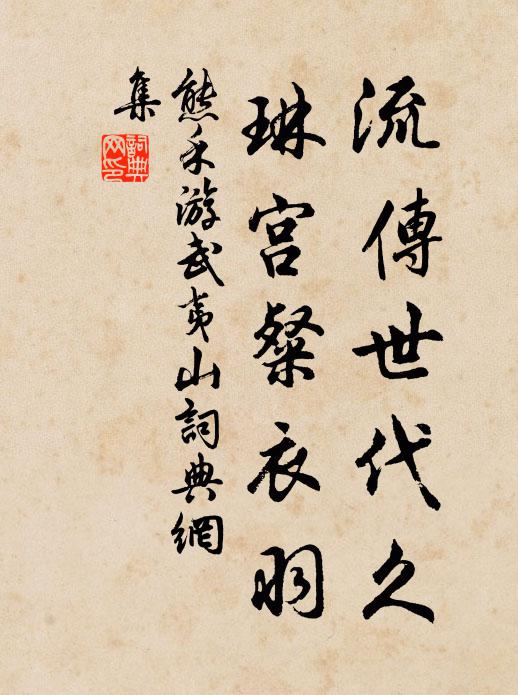 流傳世代久
琳宮粲衣羽
熊禾游武夷山詞典網
集
詞典
网印